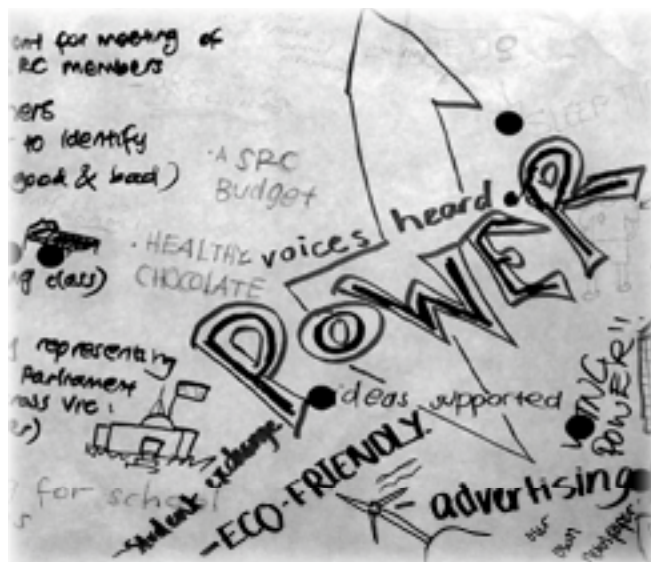 for meeting of
RC members
to identify
good & bad)
class)
representing
Parliament
for school
• A SRC
Budget
• HEALTHY
CHOCOLATE
voices heard.
POWER
ideas supported
- Student exchange
- ECO-FRIENDLY.
- advertising
POWER!!
our
own
newspaper